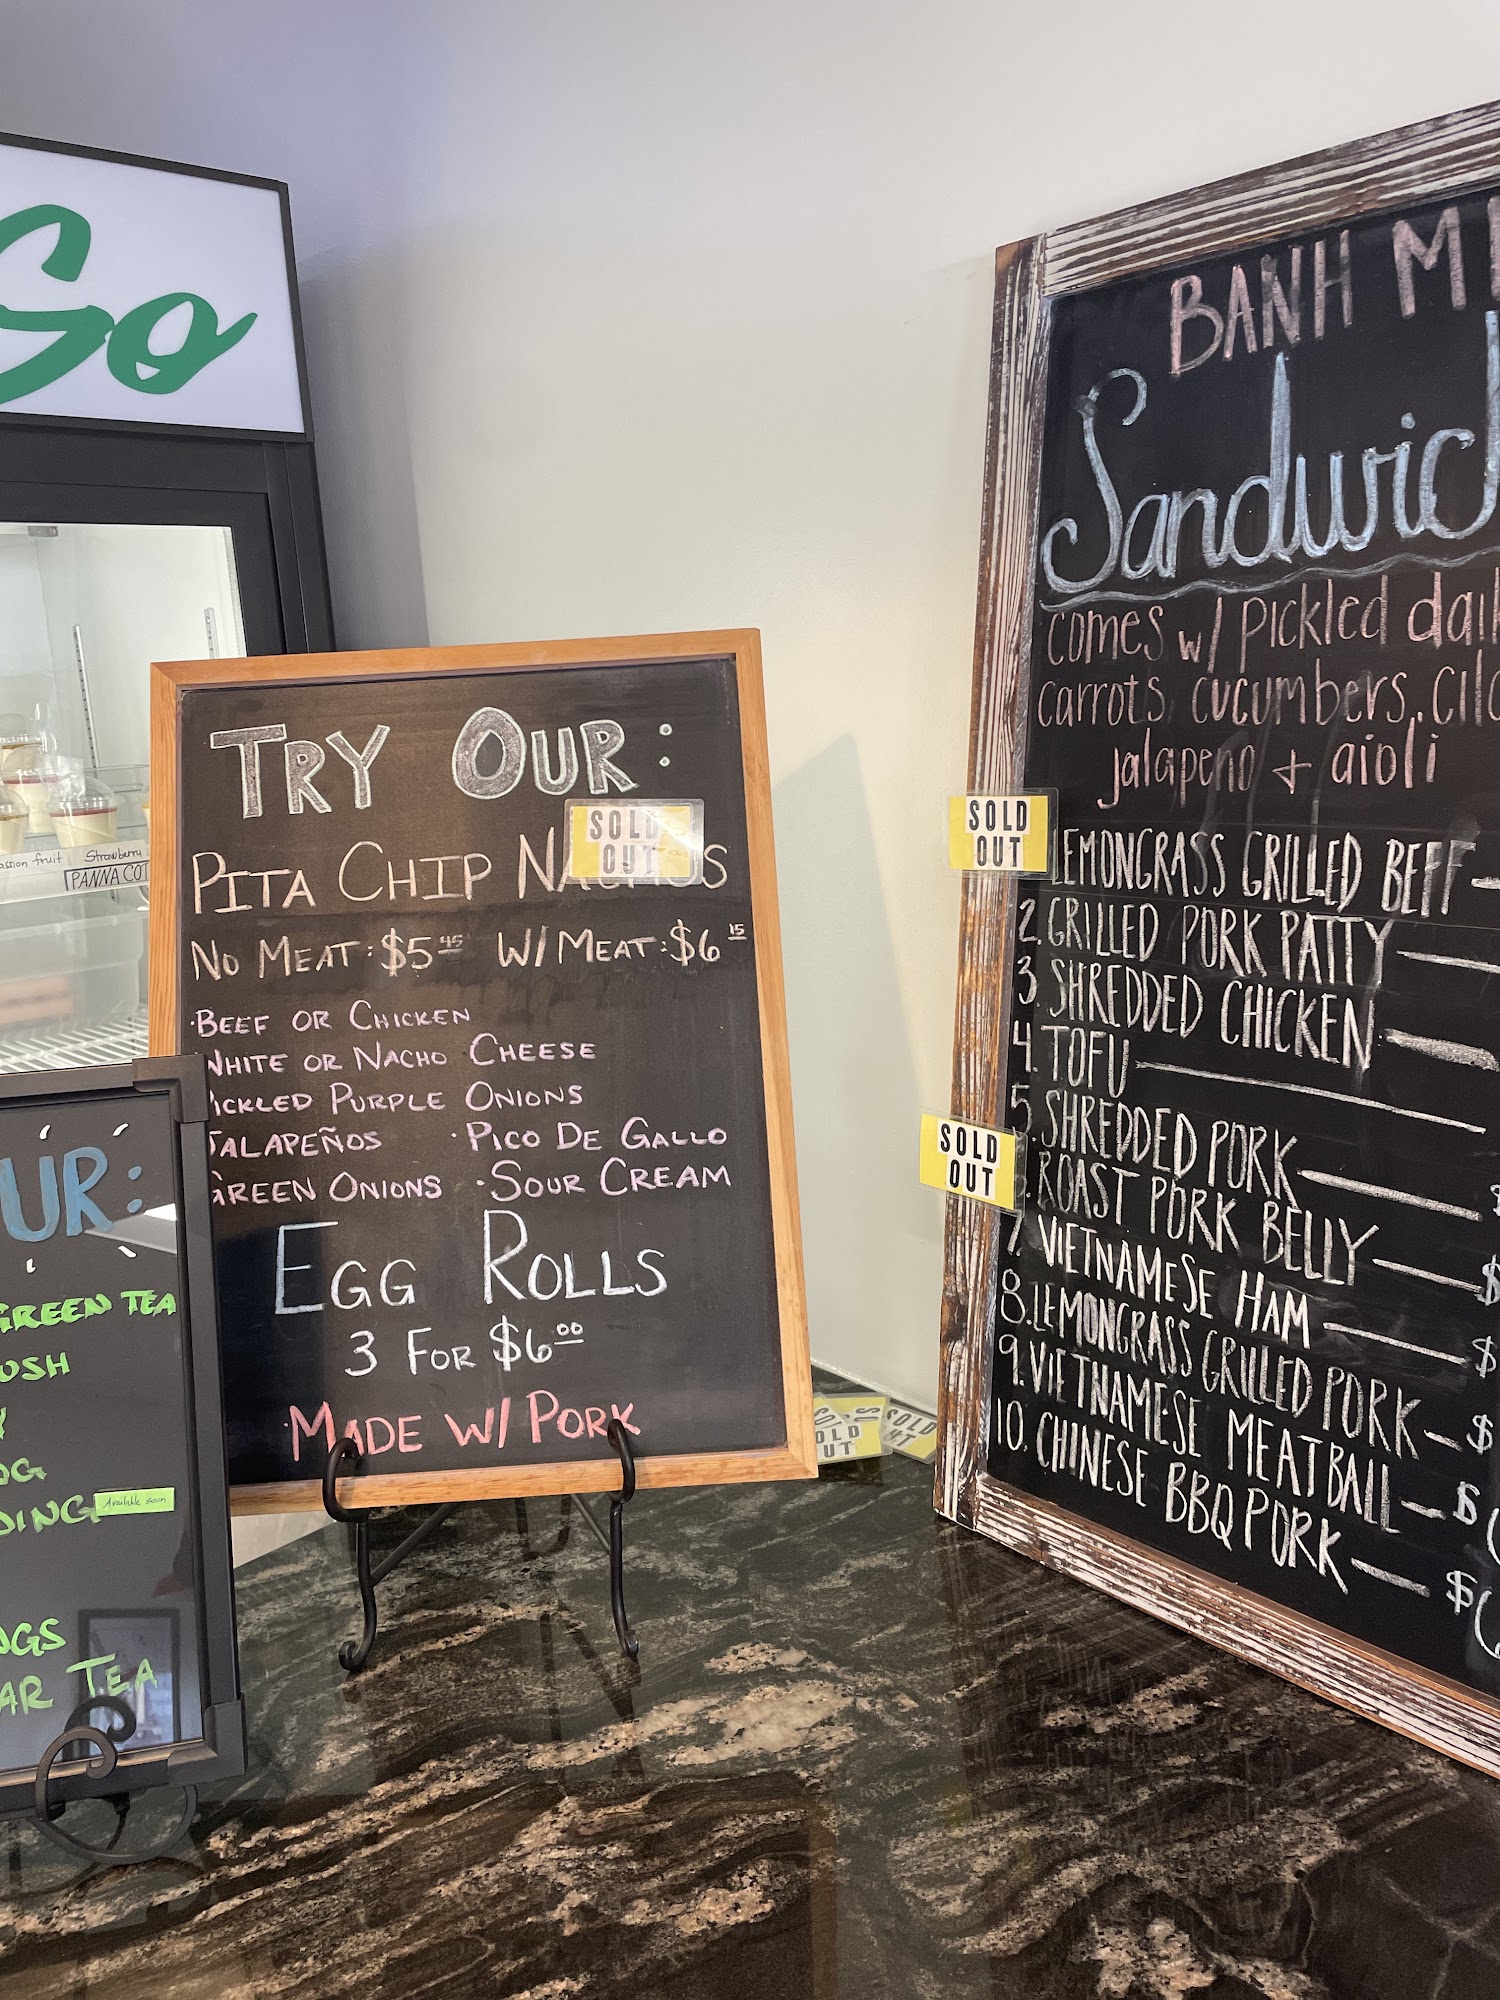 Go
assion fruit
Strawberry
PANNA COT
TRY OUR:
SOLD
OUT
PITA CHIP NACHOS
NO MEAT: $5 45 W/ MEAT: $6 15
·BEEF OR CHICKEN
WHITE OR NACHO CHEESE
ICKLED PURPLE ONIONS
JALAPEÑOS · PICO DE GALLO
GREEN ONIONS · SOUR CREAM
EGG ROLLS
3 FOR $6 00
·MADE W/ PORK
UR:
GREEN TEA
USH
Y
OG
DING
Available soon
NGS
AR TEA
BANH MI
Sandwich
comes w/ pickled daik
carrots, cucumbers, cila
jalapeno + aioli
SOLD
OUT
LEMONGRASS GRILLED BEEF
2. GRILLED PORK PATTY
3. SHREDDED CHICKEN
4. TOFU
5. SHREDDED PORK
SOLD
OUT
. ROAST PORK BELLY $
7. VIETNAMESE HAM $
8. LEMONGRASS GRILLED PORK $
9. VIETNAMESE MEATBALL $
10. CHINESE BBQ PORK $
SOLD
OUT
SOLD